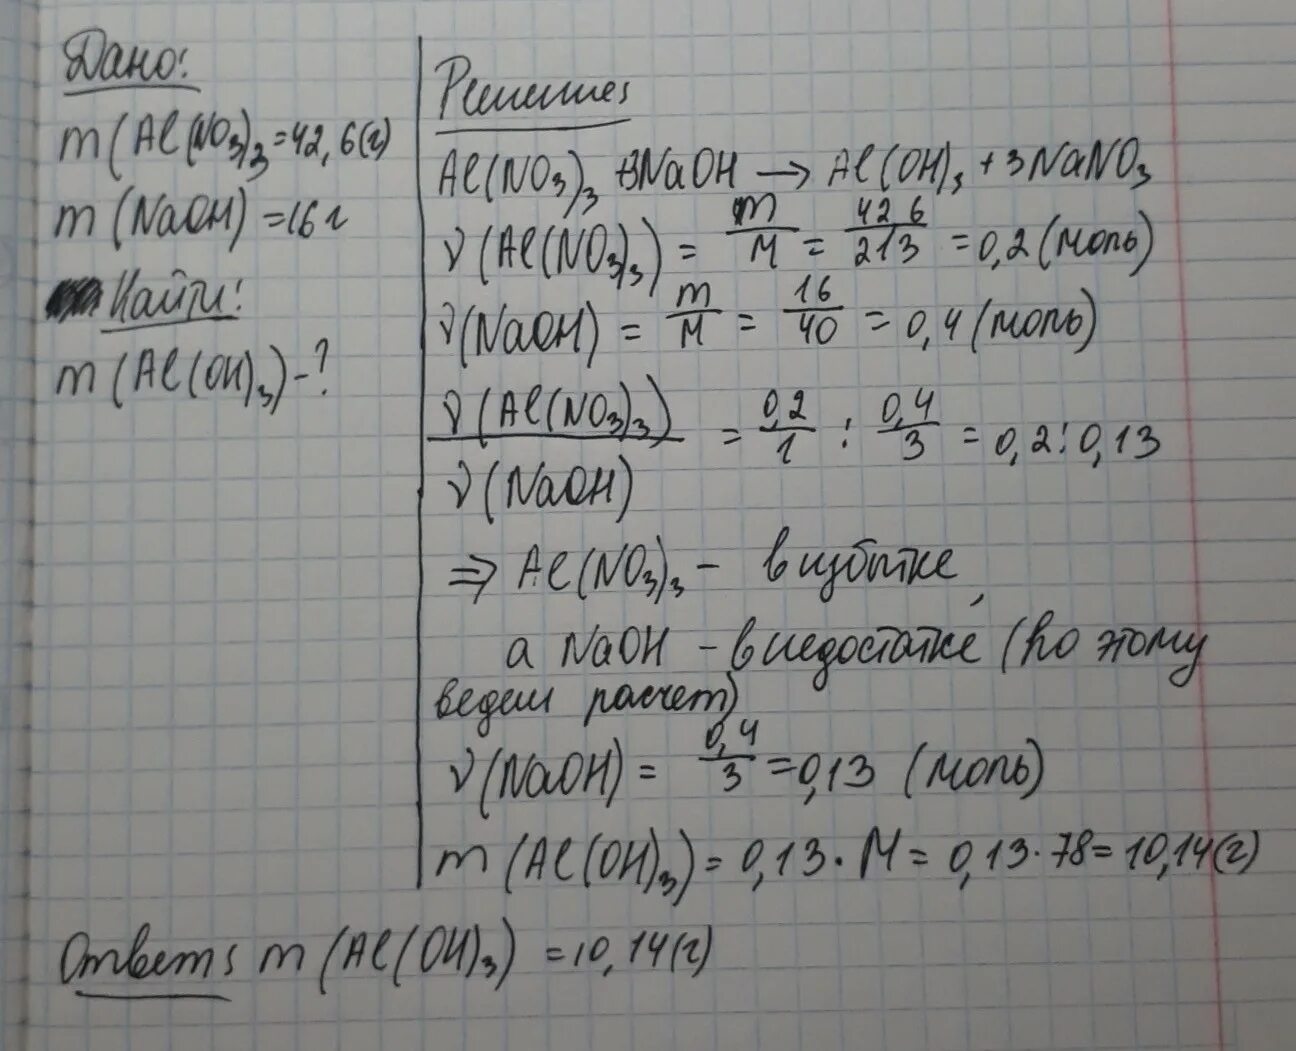 Дано:
m(Al(NO₃)₃=42,6(г)
m(NaOH)=16г
Найти:
m(Al(OH)₃)-?
Решение:
Al(NO₃)₃ +3NaOH → Al(OH)₃ + 3NaNO₃
ν(Al(NO₃)₃) = m/M = 42,6/213 = 0,2(моль)
ν(NaOH) = m/M = 16/40 = 0,4(моль)
ν(Al(NO₃)₃)/ν(NaOH) = 0,2/1 : 0,4/3 = 0,2:0,13
⇒ Al(NO₃)₃ - в избытке,
а NaOH - в недостатке (по этому
ведем расчет)
ν(NaOH) = 0,4/3 = 0,13 (моль)
m(Al(OH)₃) = 0,13 · M = 0,13 · 78 = 10,14(г)
Ответ: m(Al(OH)₃) = 10,14(г)